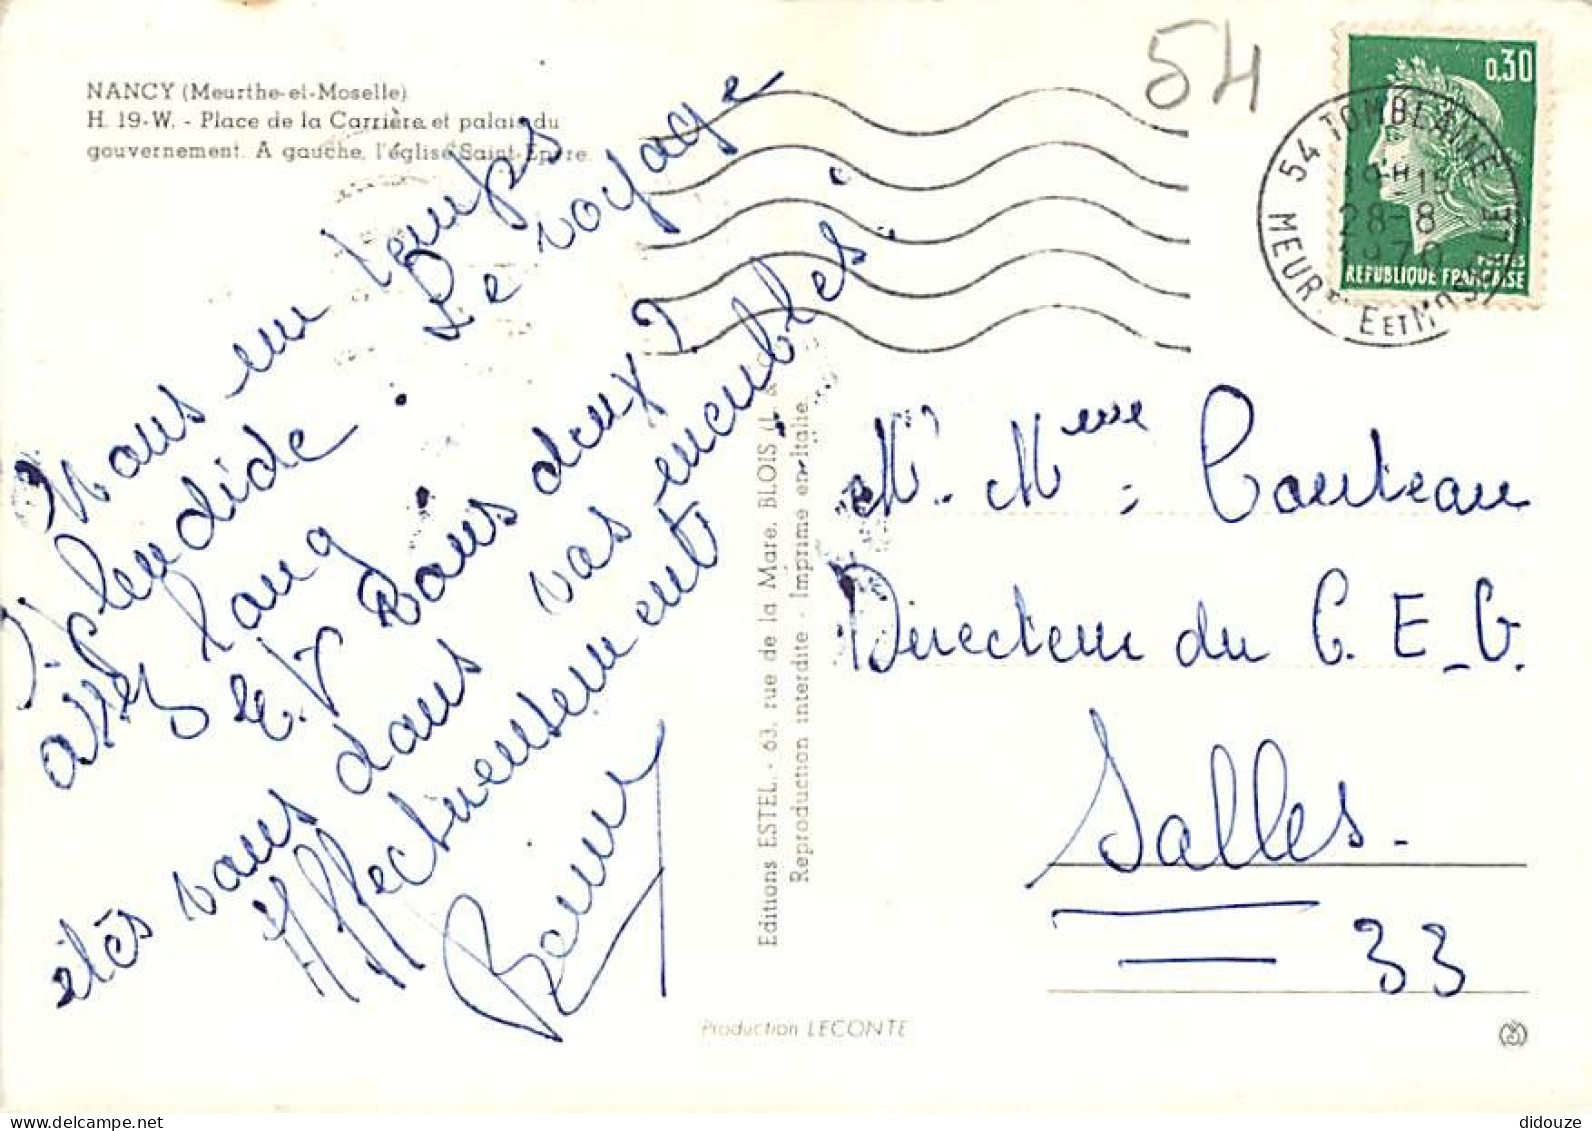 NANCY (Meurthe-et-Moselle)
H. 19-W. - Place de la Carrière et palais du
gouvernement. A gauche, l'église Saint-Epvre.
54
0,30
POSTES
REPUBLIQUE FRANÇAISE
54 TOMBLAINE
19H15
28-8
1970
MEURTHE ET MOSELLE
Nous un temps
splendide. Le voyage
assez long
et V tous deux ?
étés vous dans vos meubles.
Affectueusement
Editions ESTEL. - 63, rue de la Mare, BLOIS (L. &
Reproduction interdite - Imprimé en Italie
Mr. Mme Couteau
Directeur du C.E.G.
Salles -
33
Production LECONTE
didouze
delcampe.net